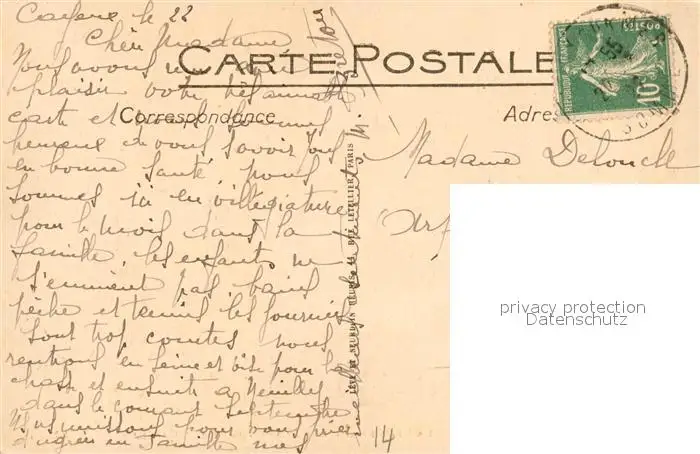 Cayeux le 22
Chère Madame
CARTE POSTALE
Nous avons reçu avec
plaisir votre bien aimable
carte et nous sommes
Correspondance
Adres
heureux de vous savoir tous
en bonne santé, nous
sommes ici en villégiature
pour le mois dans la
famille, les enfants ne
s'ennuient pas bains
pêche et tennis les journées
sont trop courtes nous
rentrons en Seine et Oise pour la
chasse et ensuite à Neuilly
dans le courant Septembre
Nous unissons pour vous prier
d'agréer en famille nos
Madame Delouck
LÉVY ET NEURDEIN RÉUNIS, 44, RUE LETELLIER, PARIS
14
REPUBLIQUE FRANÇAISE
POSTES
10c
privacy protection
Datenschutz